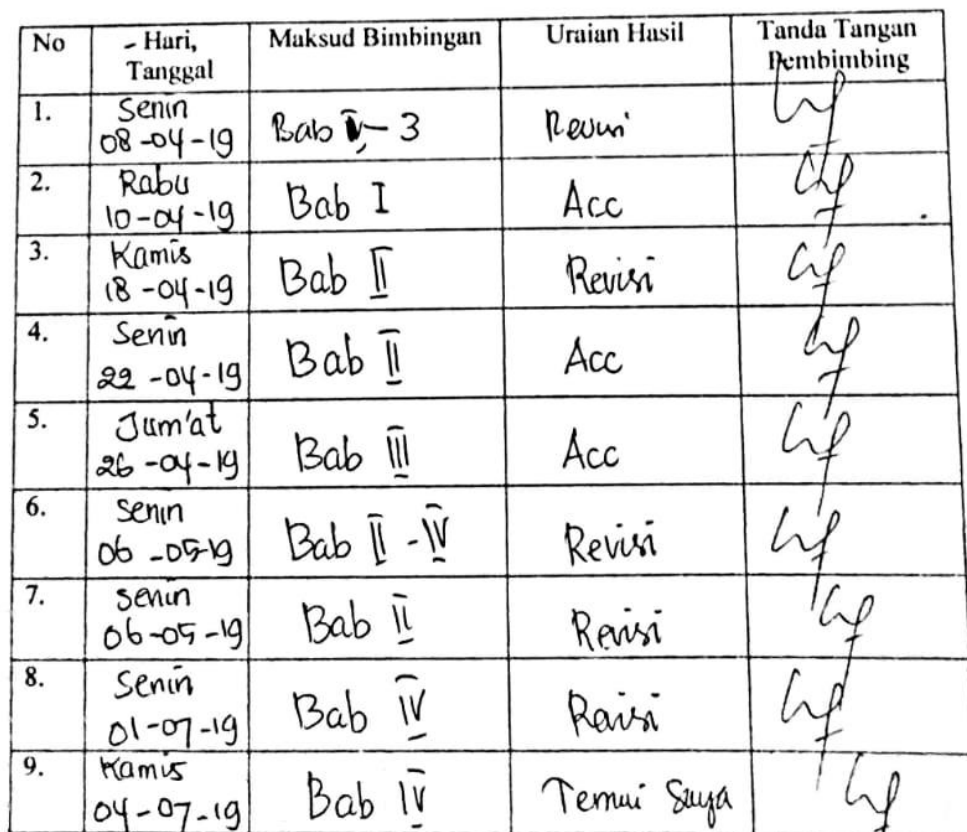 No
- Hari, Tanggal
Maksud Bimbingan
Uraian Hasil
Tanda Tangan Pembimbing
1.
Senin
08-04-19
Bab - 3
Revisi
2.
Rabu
10-04-19
Bab I
Acc
3.
Kamis
18-04-19
Bab II
Revisi
4.
Senin
22-04-19
Bab II
Acc
5.
Jum'at
26-04-19
Bab III
Acc
6.
Senin
06-05-19
Bab II - IV
Revisi
7.
Senin
06-05-19
Bab II
Revisi
8.
Senin
01-07-19
Bab IV
Revisi
9.
Kamis
04-07-19
Bab IV
Temui Saya